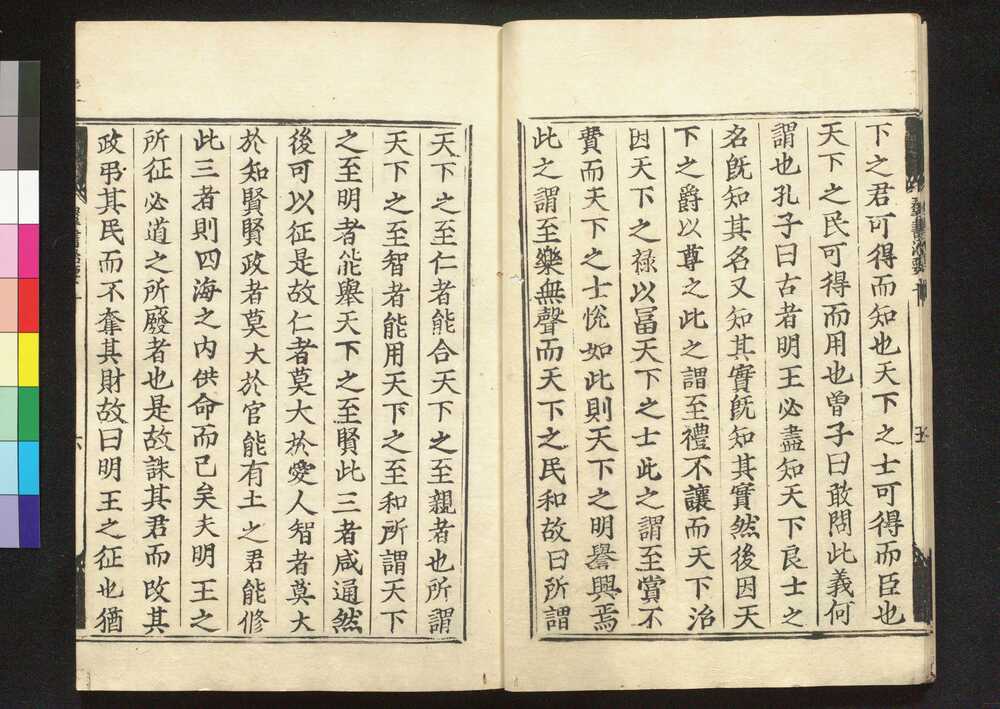 下之君可得而知也天下之士可得而臣也
天下之民可得而用也曾子曰敢問此義何
謂也孔子曰古者明王必盡知天下良士之
名旣知其名又知其實旣知其實然後因天
下之爵以尊之此之謂至禮不讓而天下治
因天下之祿以富天下之士此之謂至賞不
費而天下之士悅如此則天下之明譽興焉
此之謂至樂無聲而天下之民和故曰所謂
天下之至仁者能合天下之至親者也所謂
天下之至智者能用天下之至和所謂天下
之至明者能舉天下之至賢此三者咸通然
後可以征是故仁者莫大於愛人智者莫大
於知賢賢政者莫大於官能有土之君能修
此三者則四海之内供命而已矣夫明王之
所征必道之所廢者也是故誅其君而改其
政弔其民而不奪其財故曰明王之征也猶
羣書治要十
五
六